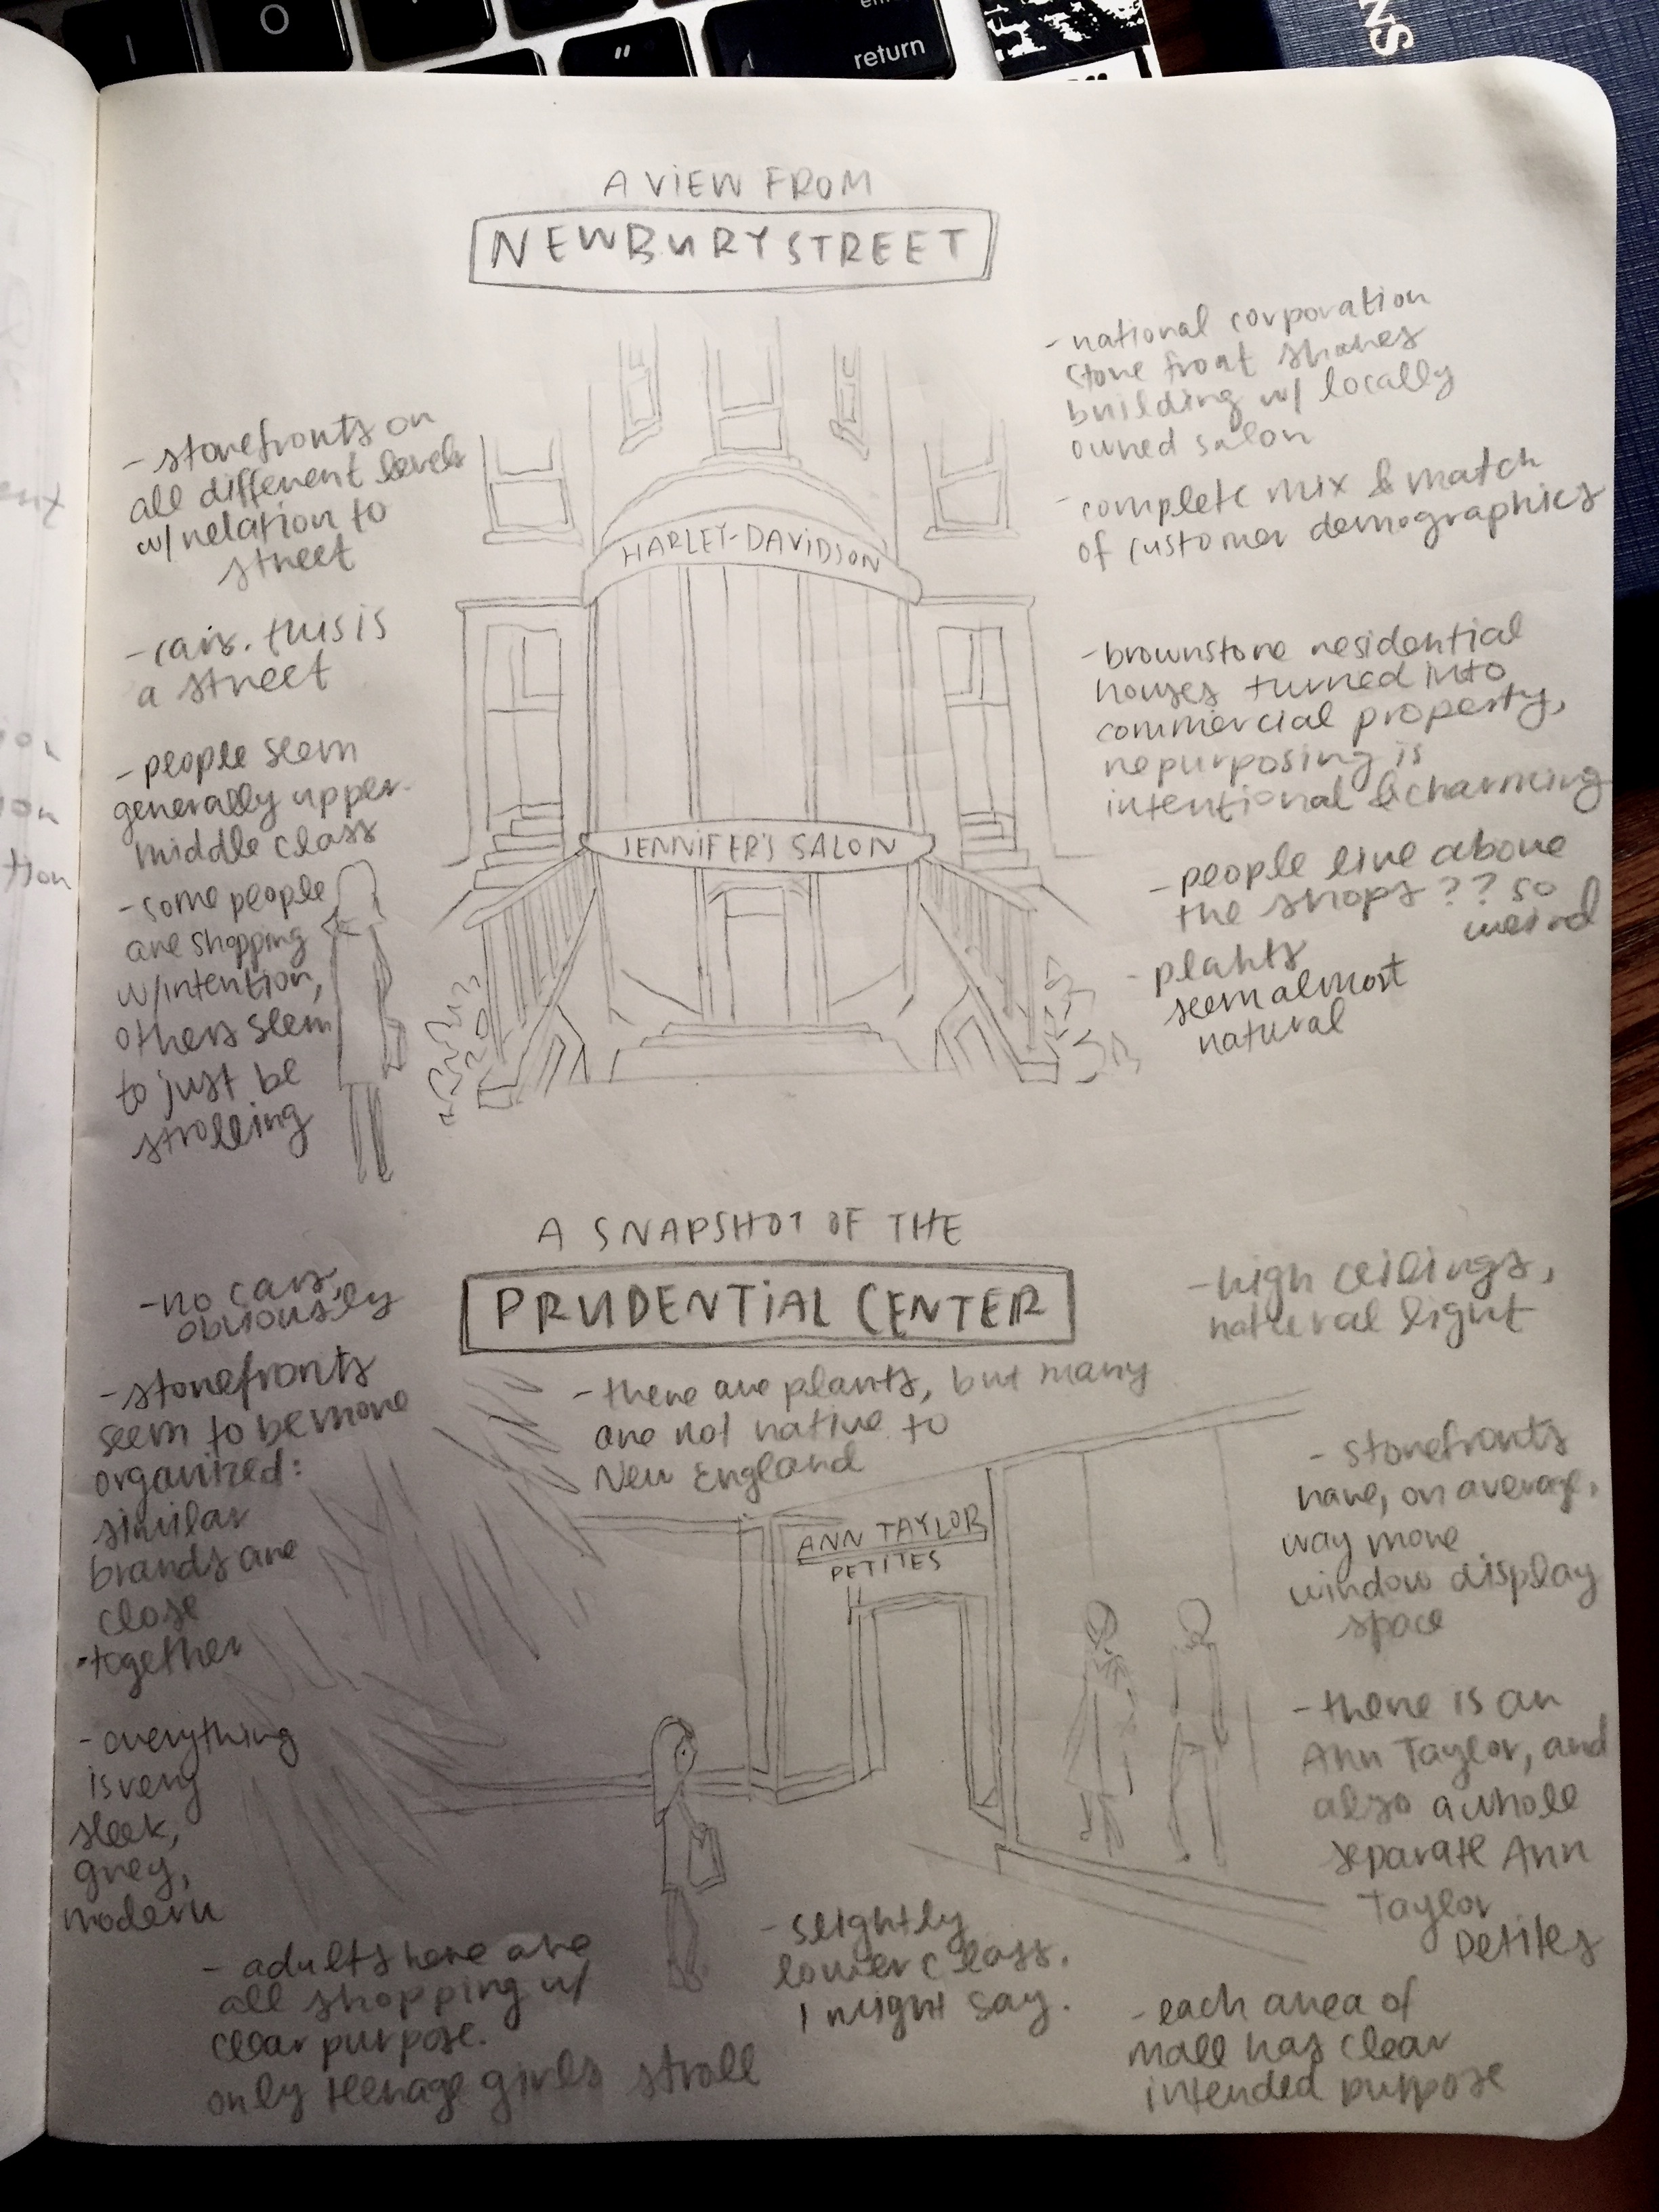 O
"
return
NS
A VIEW FROM
NEWBURY STREET
- storefronts on
all different levels
w/ relation to
street
- cars. this is
a street
- people seem
generally upper-
middle class
- some people
are shopping
w/ intention,
others seem
to just be
strolling
HARLEY-DAVIDSON
JENNIFER'S SALON
- national corporation
store front shares
building w/ locally
owned salon
- complete mix & match
of customer demographics
- brownstone residential
houses turned into
commercial property,
repurposing is
intentional & charming
- people live above
the shops?? so
weird
- plants
seem almost
natural
A SNAPSHOT OF THE
PRUDENTIAL CENTER
- no cars,
obviously
- storefronts
seem to be more
organized:
similar
brands are
close
together
- everything
is very
sleek,
grey,
modern
- adults here are
all shopping w/
clear purpose.
only teenage girls stroll
- there are plants, but many
are not native to
New England
ANN TAYLOR
PETITES
- slightly
lower class.
I might say.
- high ceilings,
natural light
- storefronts
have, on average,
way more
window display
space
- there is an
Ann Taylor, and
also a whole
separate Ann
Taylor
Petites
- each area of
mall has clear
intended purpose